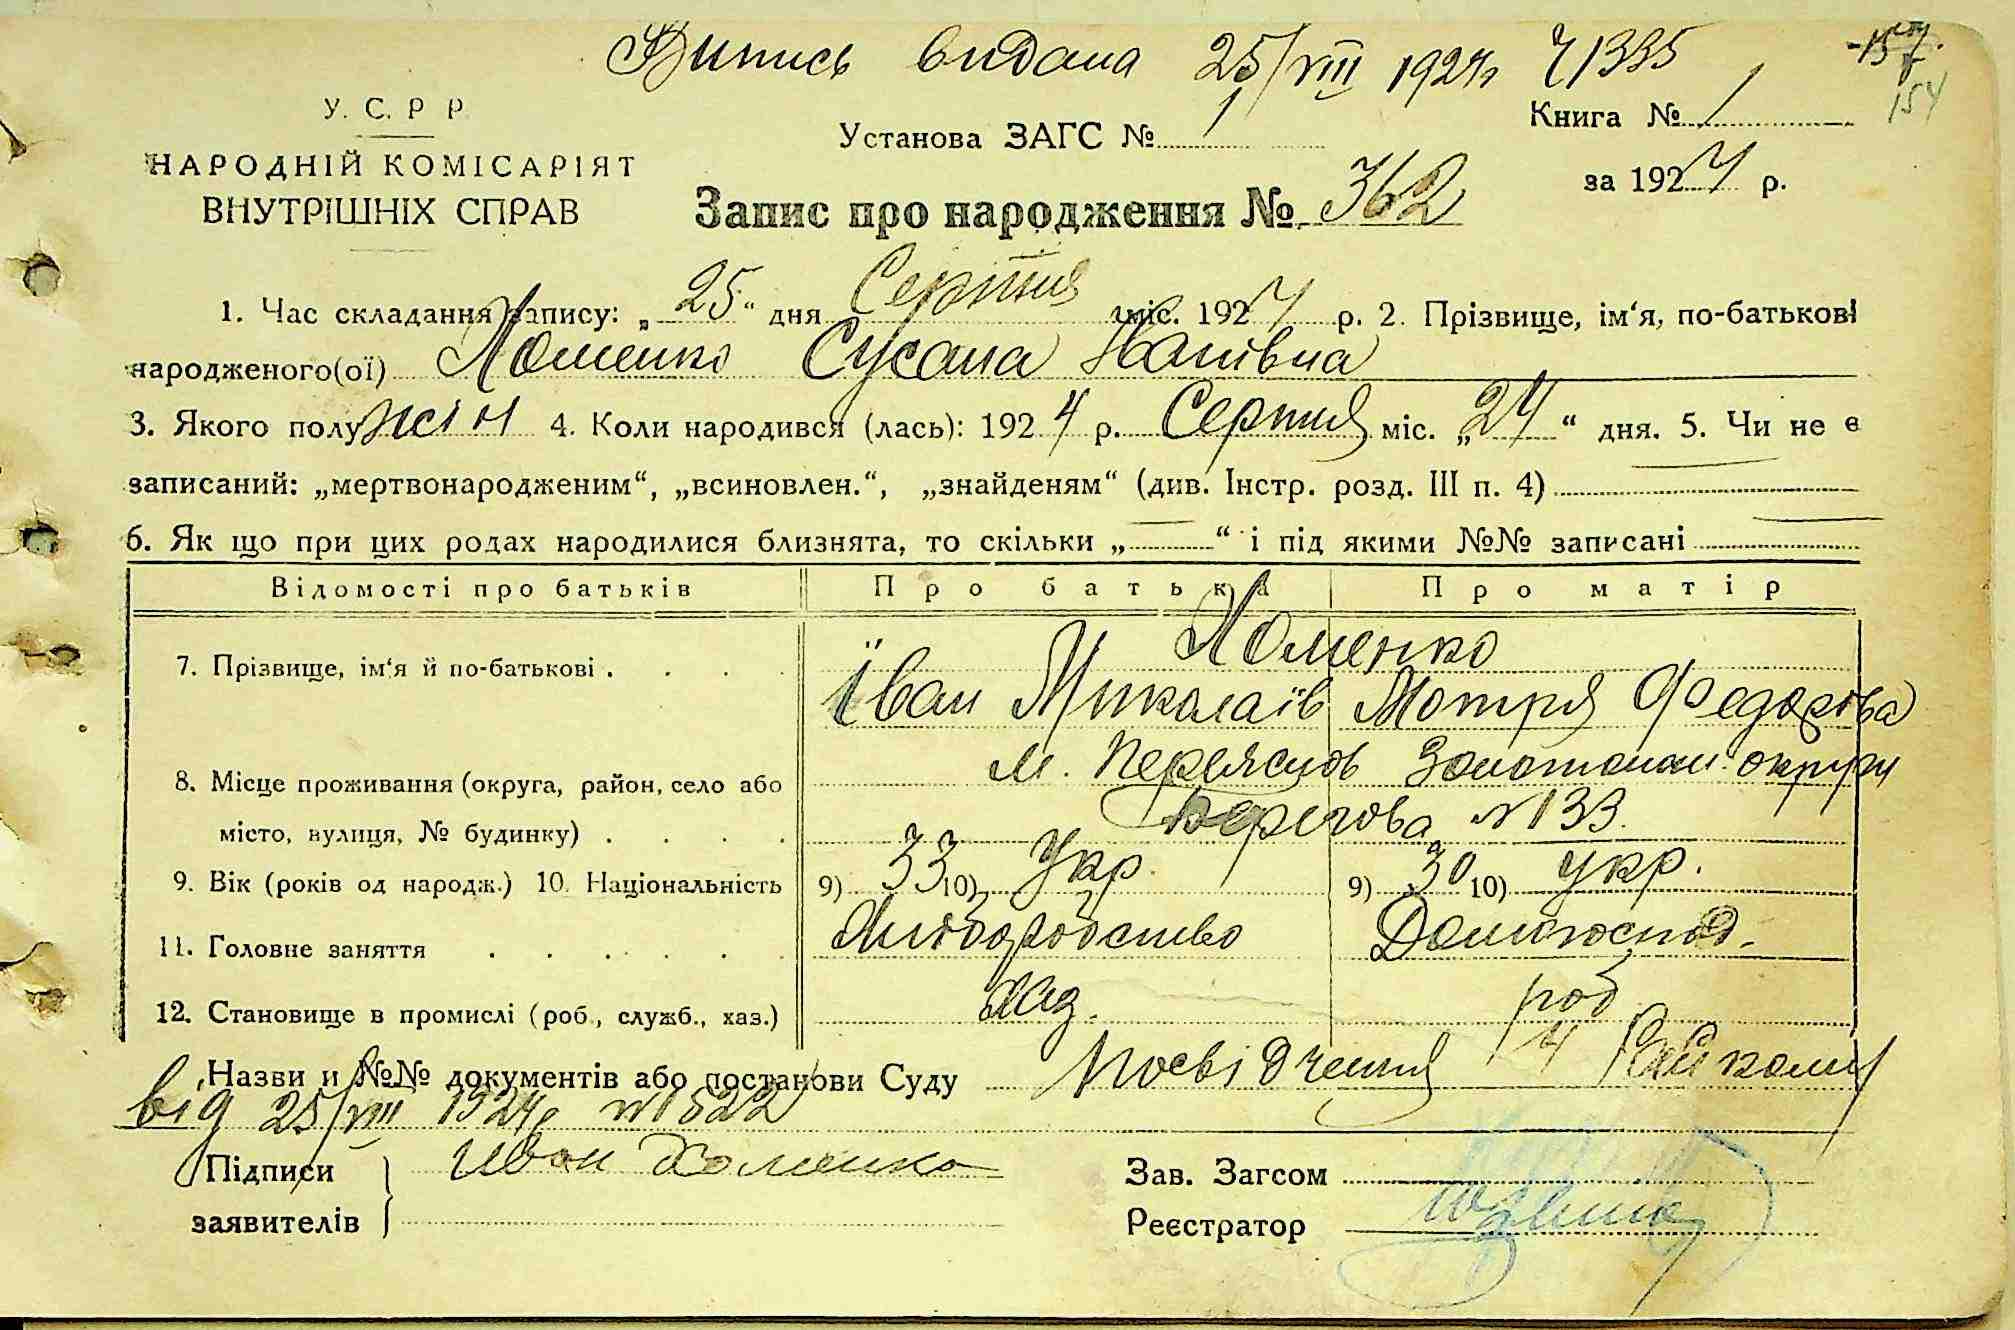 Випись видана 25/VIII 1924 р Ч 1335
У. С. Р Р
НАРОДНІЙ КОМІСАРІЯТ
ВНУТРІШНІХ СПРАВ
Установа ЗАГС № 1
Книга № 1
154
за 1924 р.
Запис про народження № 362
1. Час складання запису: „25“ дня Серпня міс. 1924 р. 2. Прізвище, ім‘я, по-батькові
народженого(ої) Хоменко Сусана Іванівна
3. Якого полу жін 4. Коли народився (лась): 1924 р. Серпня міс. „24“ дня. 5. Чи не є
записаний: „мертвонародженим“, „всиновлен.“, „знайденям“ (див. Інстр. розд. III п. 4) —
6. Як що при цих родах народилися близнята, то скільки „—“ і під якими №№ записані —
Відомості про батьків Про батька Про матір
7. Прізвище, ім‘я й по-батькові . . . . Хоменко
Іван Миколаїв Мотря Федорова
8. Місце проживання (округа, район, село або м. Переяслов Золотоніш. округи
місто, вулиця, № будинку) . . . . Берегова № 133.
9. Вік (років од народж.) 10. Національність 9) 33 10) Укр. 9) 30 10) укр.
11. Головне заняття . . . . . . Хліборобство Домогоспод.
12. Становище в промислі (роб., служб., хаз.) Хаз. роб
Назви и №№ документів або постанови Суду Посвідчення 4 Райкому
від 25/VIII 1924 р № 1622
Підписи заявителів Иван Хоменко
Зав. Загсом
Реєстратор